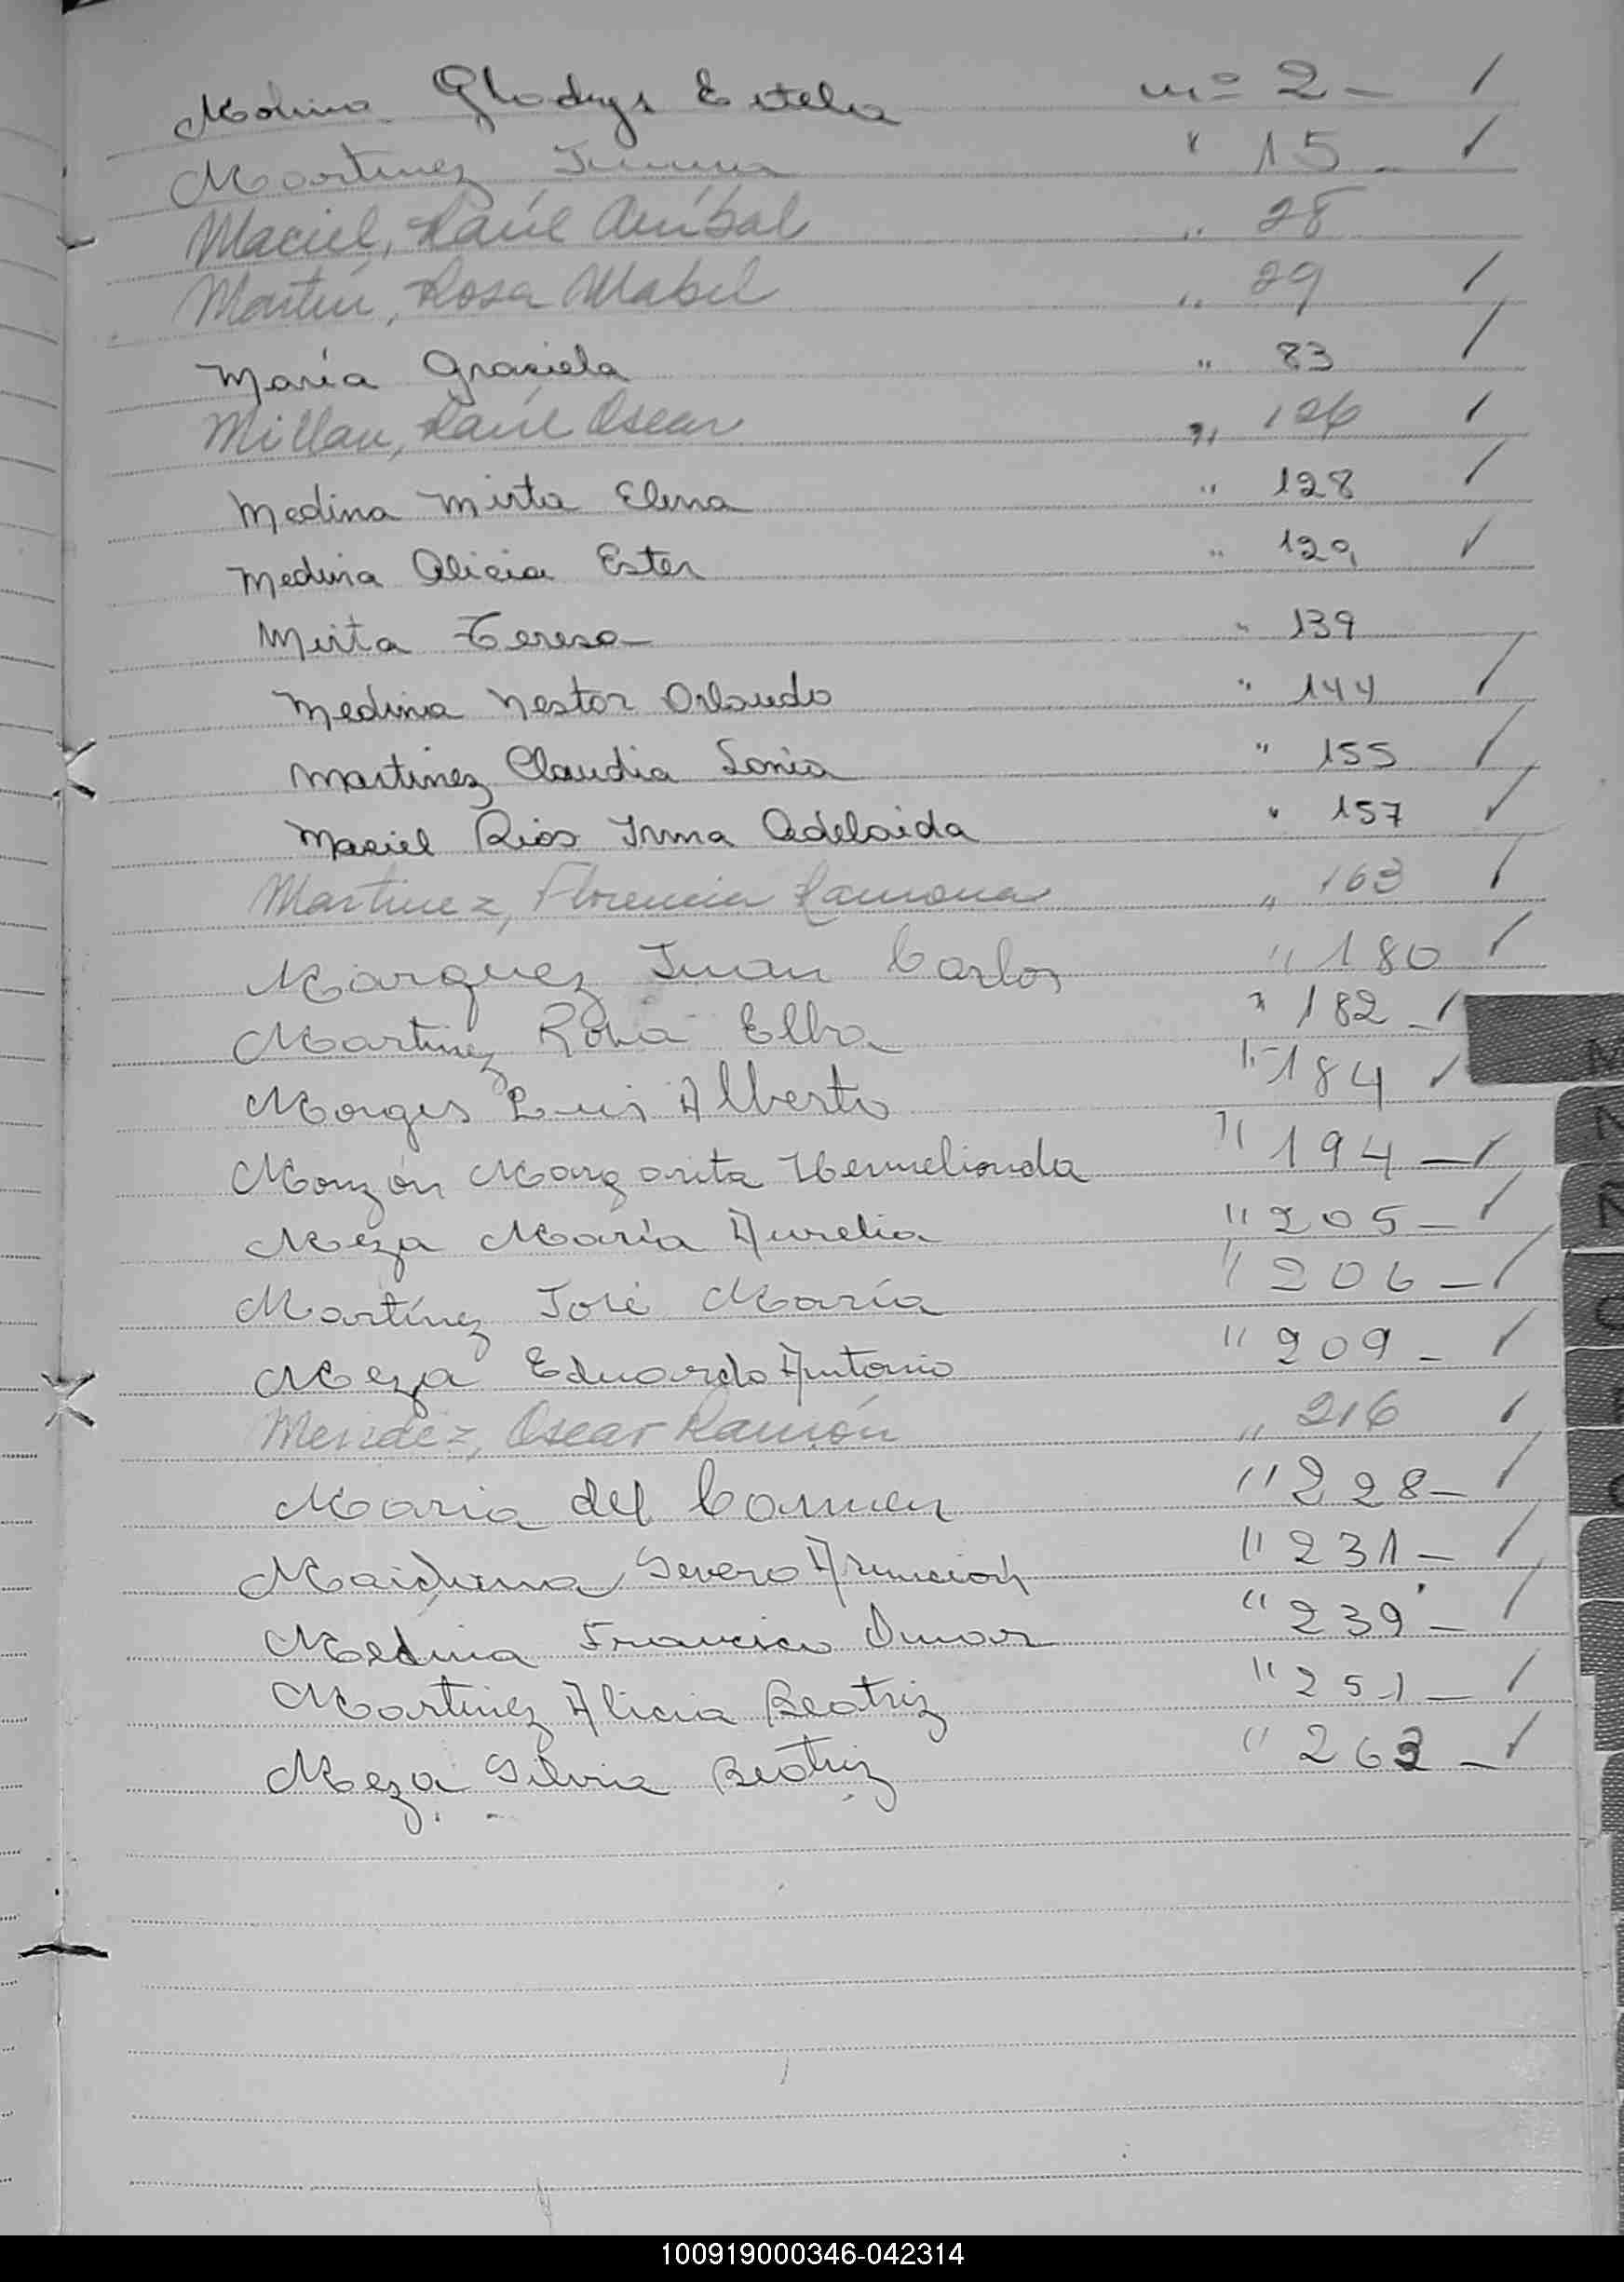 Molina Gladys Estela nº 2 -
Martinez " 15 -
Maciel, Raúl Aníbal " 28
Martín, Rosa Mabel " 29
María Graciela " 83
Millan, Raúl Oscar " 126
Medina Mirta Elena " 128
Medina Alicia Ester " 129
Mirta Teresa " 139
Medina Nestor Orlando " 144
Martinez Claudia Sonia " 155
Maciel Rios Irma Adelaida " 157
Martinez, Florencia Ramona " 163
Marquez Juan Carlos " 180
Martinez Rosa Elba " 182 -
Monges Luis Alberto " 184
Monzón Margarita Hermelionda " 194 -
Meza María Aurelia " 205 -
Martínez José María " 206 -
Meza Eduardo Antonio " 209 -
Mendez, Oscar Ramón " 216
Maria del Carmen " 228 -
Maidana Severo Asuncion " 231 -
Medina Francisco Omar " 239 -
Martinez Alicia Beatriz " 251 -
Meza Silvia Beatriz " 263 -
N
N
100919000346-042314